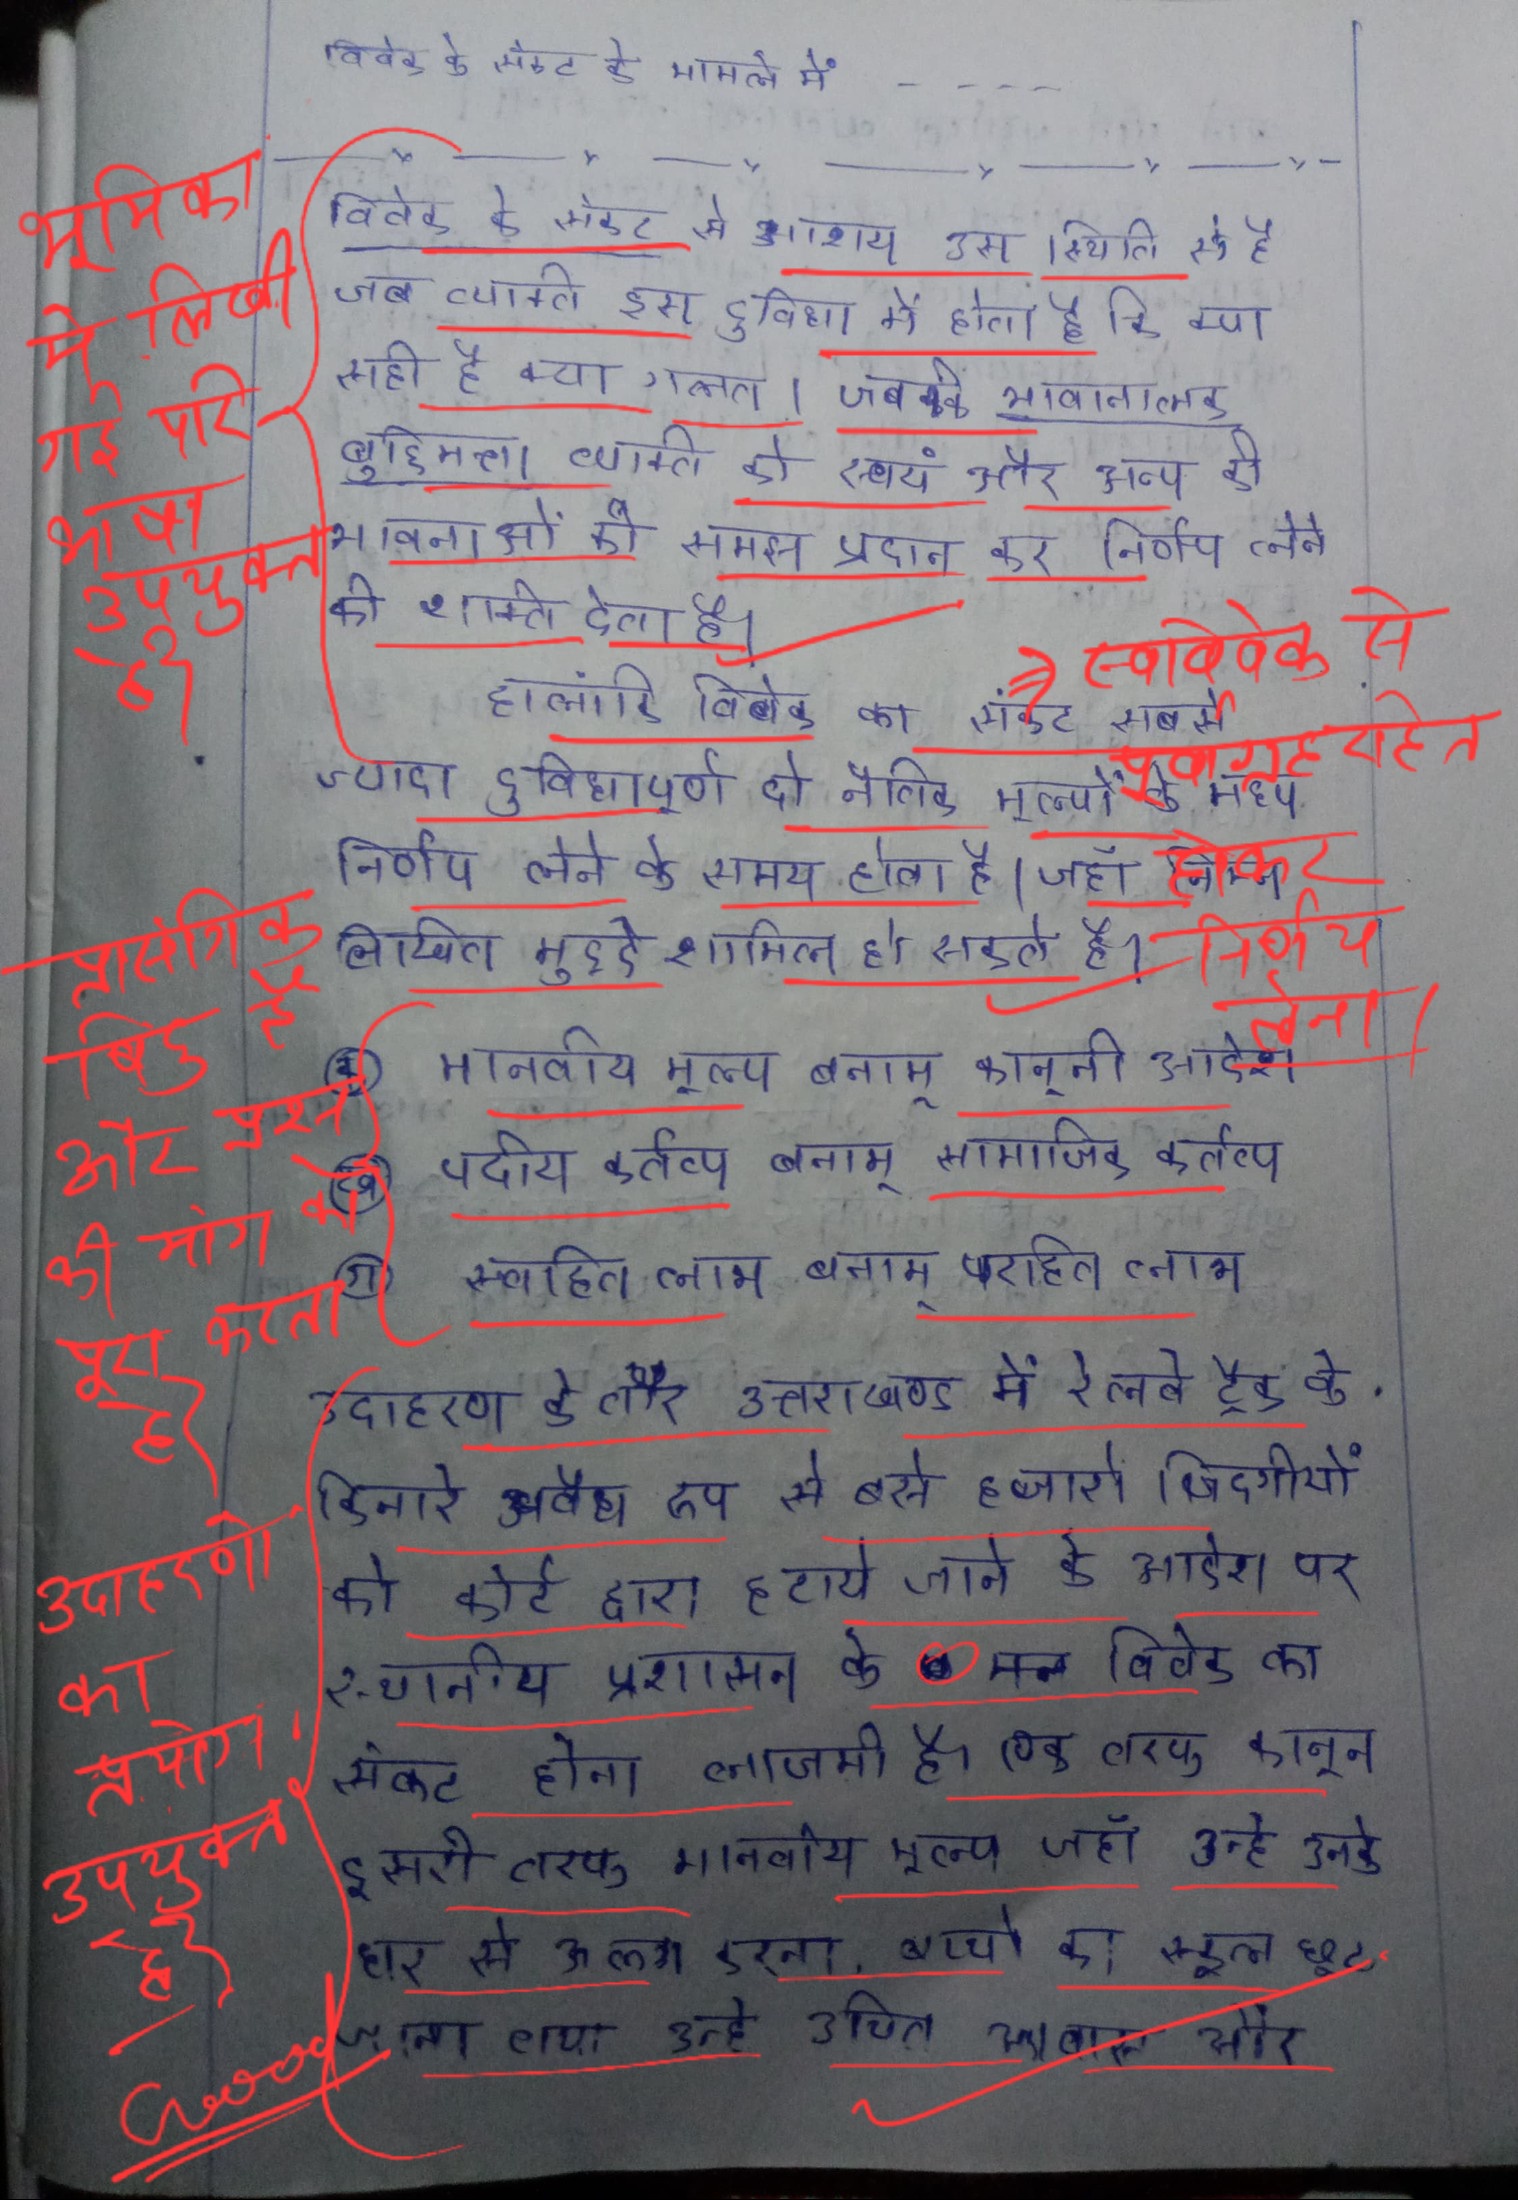 विवेक के संकट के मामले में - - - -
विवेक के संकट से आशय उस स्थिति से है
जब व्यक्ति इस दुविधा में होता है कि क्या
सही है क्या गलत। जबकि भावानात्मक
बुद्धिमत्ता व्यक्ति को स्वयं और अन्य की
भावनाओं की समझ प्रदान कर निर्णय लेने
की शक्ति देता है।
हालांकि विवेक का संकट सबसे
ज्यादा दुविधापूर्ण दो नैतिक मूल्यों के मध्य
निर्णय लेने के समय होता है। जहाँ निम्न
लिखित मुद्दे शामिल हो सकते है।
(क) मानवीय मूल्य बनाम् कानूनी आदेश
(ख) पदीय कर्तव्य बनाम् सामाजिक कर्तव्य
(ग) स्वहित लाभ बनाम् परहित लाभ
उदाहरण के तौर उत्तराखण्ड में रेलवे ट्रैक के
किनारे अवैध रूप से बसे हजारों जिंदगीयों
को कोर्ट द्वारा हटाये जाने के आदेश पर
स्थानीय प्रशासन के मन विवेक का
संकट होना लाजमी है। एक तरफ कानून
दूसरी तरफ मानवीय मूल्य जहाँ उन्हे उनके
घर से अलग करना, बच्चो का स्कूल छूट
जाना तथा उन्हे उचित आवास और
भूमिका
में लिखी
गई परि
भाषा
उपयुक्त
है।
स्वविवेक से
पूर्वाग्रह रहित
होकर
निर्णय
लेना।
प्रासंगिक
बिंदु है
और प्रश्न
की मांग को
पूरा करता
है।
उदाहरणों
का
प्रयोग
उपयुक्त
है।
Good